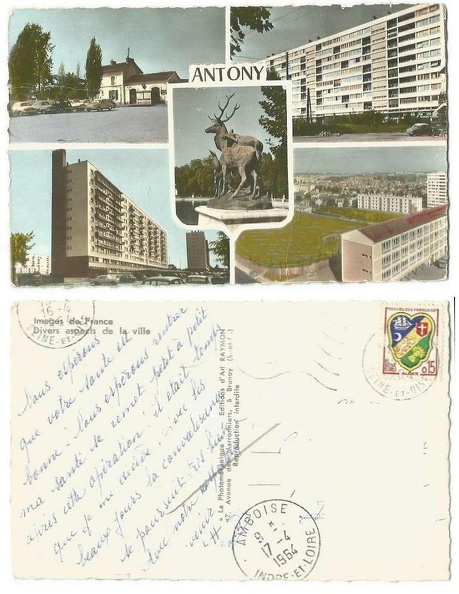 ANTONY
Images de France
Divers aspects de la ville
Nous espérons
que votre santé est
bonne. Nous espérons rentrer
ma santé se remet petit à petit
après cette opération, il était temps
que je me décide. Avec les
beaux jours la convalescence
se poursuit très bien
Avec notre
venir
Editions d'Art RAYMON
Avenue des Marronniers, à Brunoy (S.-et-O.)
Reproduction interdite
REPUBLIQUE FRANÇAISE
0,15
ALGER
15-4
SEINE-ET-OISE
AMBOISE
9 H
17-4
1964
INDRE-ET-LOIRE